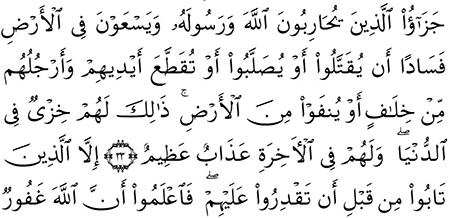 جَزَٰٓؤُا۟ ٱلَّذِينَ يُحَارِبُونَ ٱللَّهَ وَرَسُولَهُۥ وَيَسْعَوْنَ فِى ٱلْأَرْضِ
فَسَادًا أَن يُقَتَّلُوٓا۟ أَوْ يُصَلَّبُوٓا۟ أَوْ تُقَطَّعَ أَيْدِيهِمْ وَأَرْجُلُهُم
مِّنْ خِلَـٰفٍ أَوْ يُنفَوْا۟ مِنَ ٱلْأَرْضِ ۚ ذَٰلِكَ لَهُمْ خِزْىٌ فِى
ٱلدُّنْيَا ۖ وَلَهُمْ فِى ٱلْـَٔاخِرَةِ عَذَابٌ عَظِيمٌ ﴿٣٣﴾ إِلَّا ٱلَّذِينَ
تَابُوا۟ مِن قَبْلِ أَن تَقْدِرُوا۟ عَلَيْهِمْ ۖ فَٱعْلَمُوٓا۟ أَنَّ ٱللَّهَ غَفُورٌ